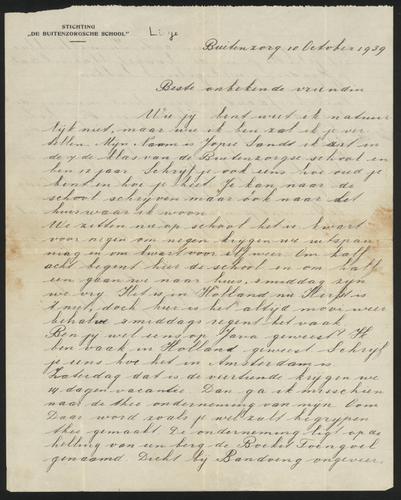 STICHTING
„DE BUITENZORGSCHE SCHOOL”
Buitenzorg 10 October 1939
Beste onbekende vriendin
Wie jy bent weet ik natuur
lijk niet, maar wie ik ben zal ik je ver
tellen. Mijn Naam is Jopie Sandt ik zit in
de 7de klas van de Buitenzorgse school en
ben 12 jaar. Schryf je ook eens hoe oud je
bent en hoe je heet. Je kan naar de
school schrijven maar ook naar het
huis waar ik woon.
We zitten nu op school het is kwart
voor negen om negen krygen we uitspan
ning en om kwart voor elf weer. Om half
acht begint hier de school en om half
een gaan we naar huis, smiddag zyn
we vry. Het is in Holland nu Herfst is
't niet, doch hier is het altyd mooi weer
behalve smiddags regent het vaak
Ben jy wel eens op Java geweest? Ik
ben vaak in Holland geweest. Schryf
je eens hoe het in Amsterdam is.
Zaterdag dat is de veertiende krygen we
14 dagen vacantie. Dan ga ik misschien
naar de thee onderneming van mijn Oom
Daar word zoals je wel zult begrypen
thee gemaakt. De onderneming ligt op de
helling van een berg de Boekit Toenggoel
genaamd. Dicht by Bandoeng ongeveer